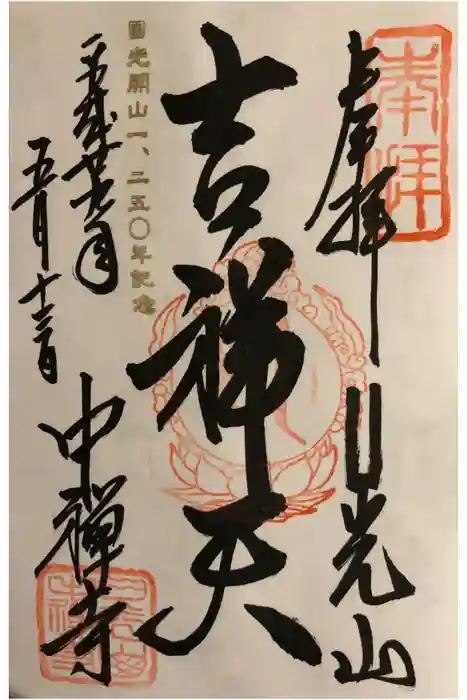 奉拝
奉拝 日光山
吉祥天
日光開山一、二五〇年記念
平成廿八年
五月十三日
中禪寺